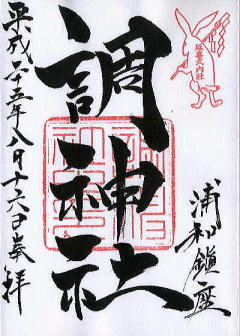 延喜式内社
浦和鎮座
調神社
平成二十五年八月十六日奉拝